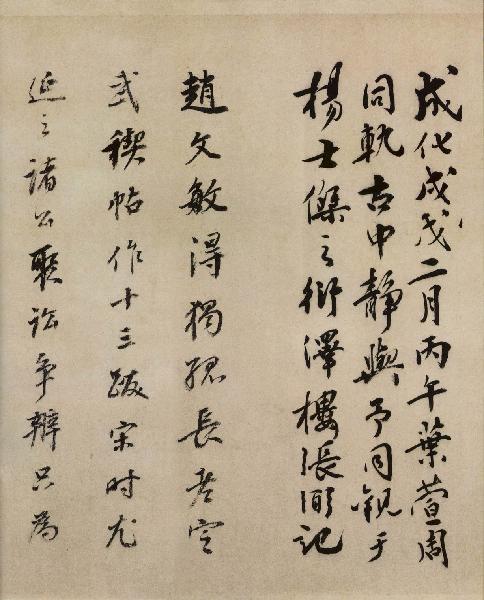 成化戊戌二月丙午葉萱周
同軌古中靜與予同觀于
楊士傑之衍澤樓張弼記
趙文敏得獨孤長老定
武禊帖作十三跋宋時尤
延之諸公聚訟爭辯只為